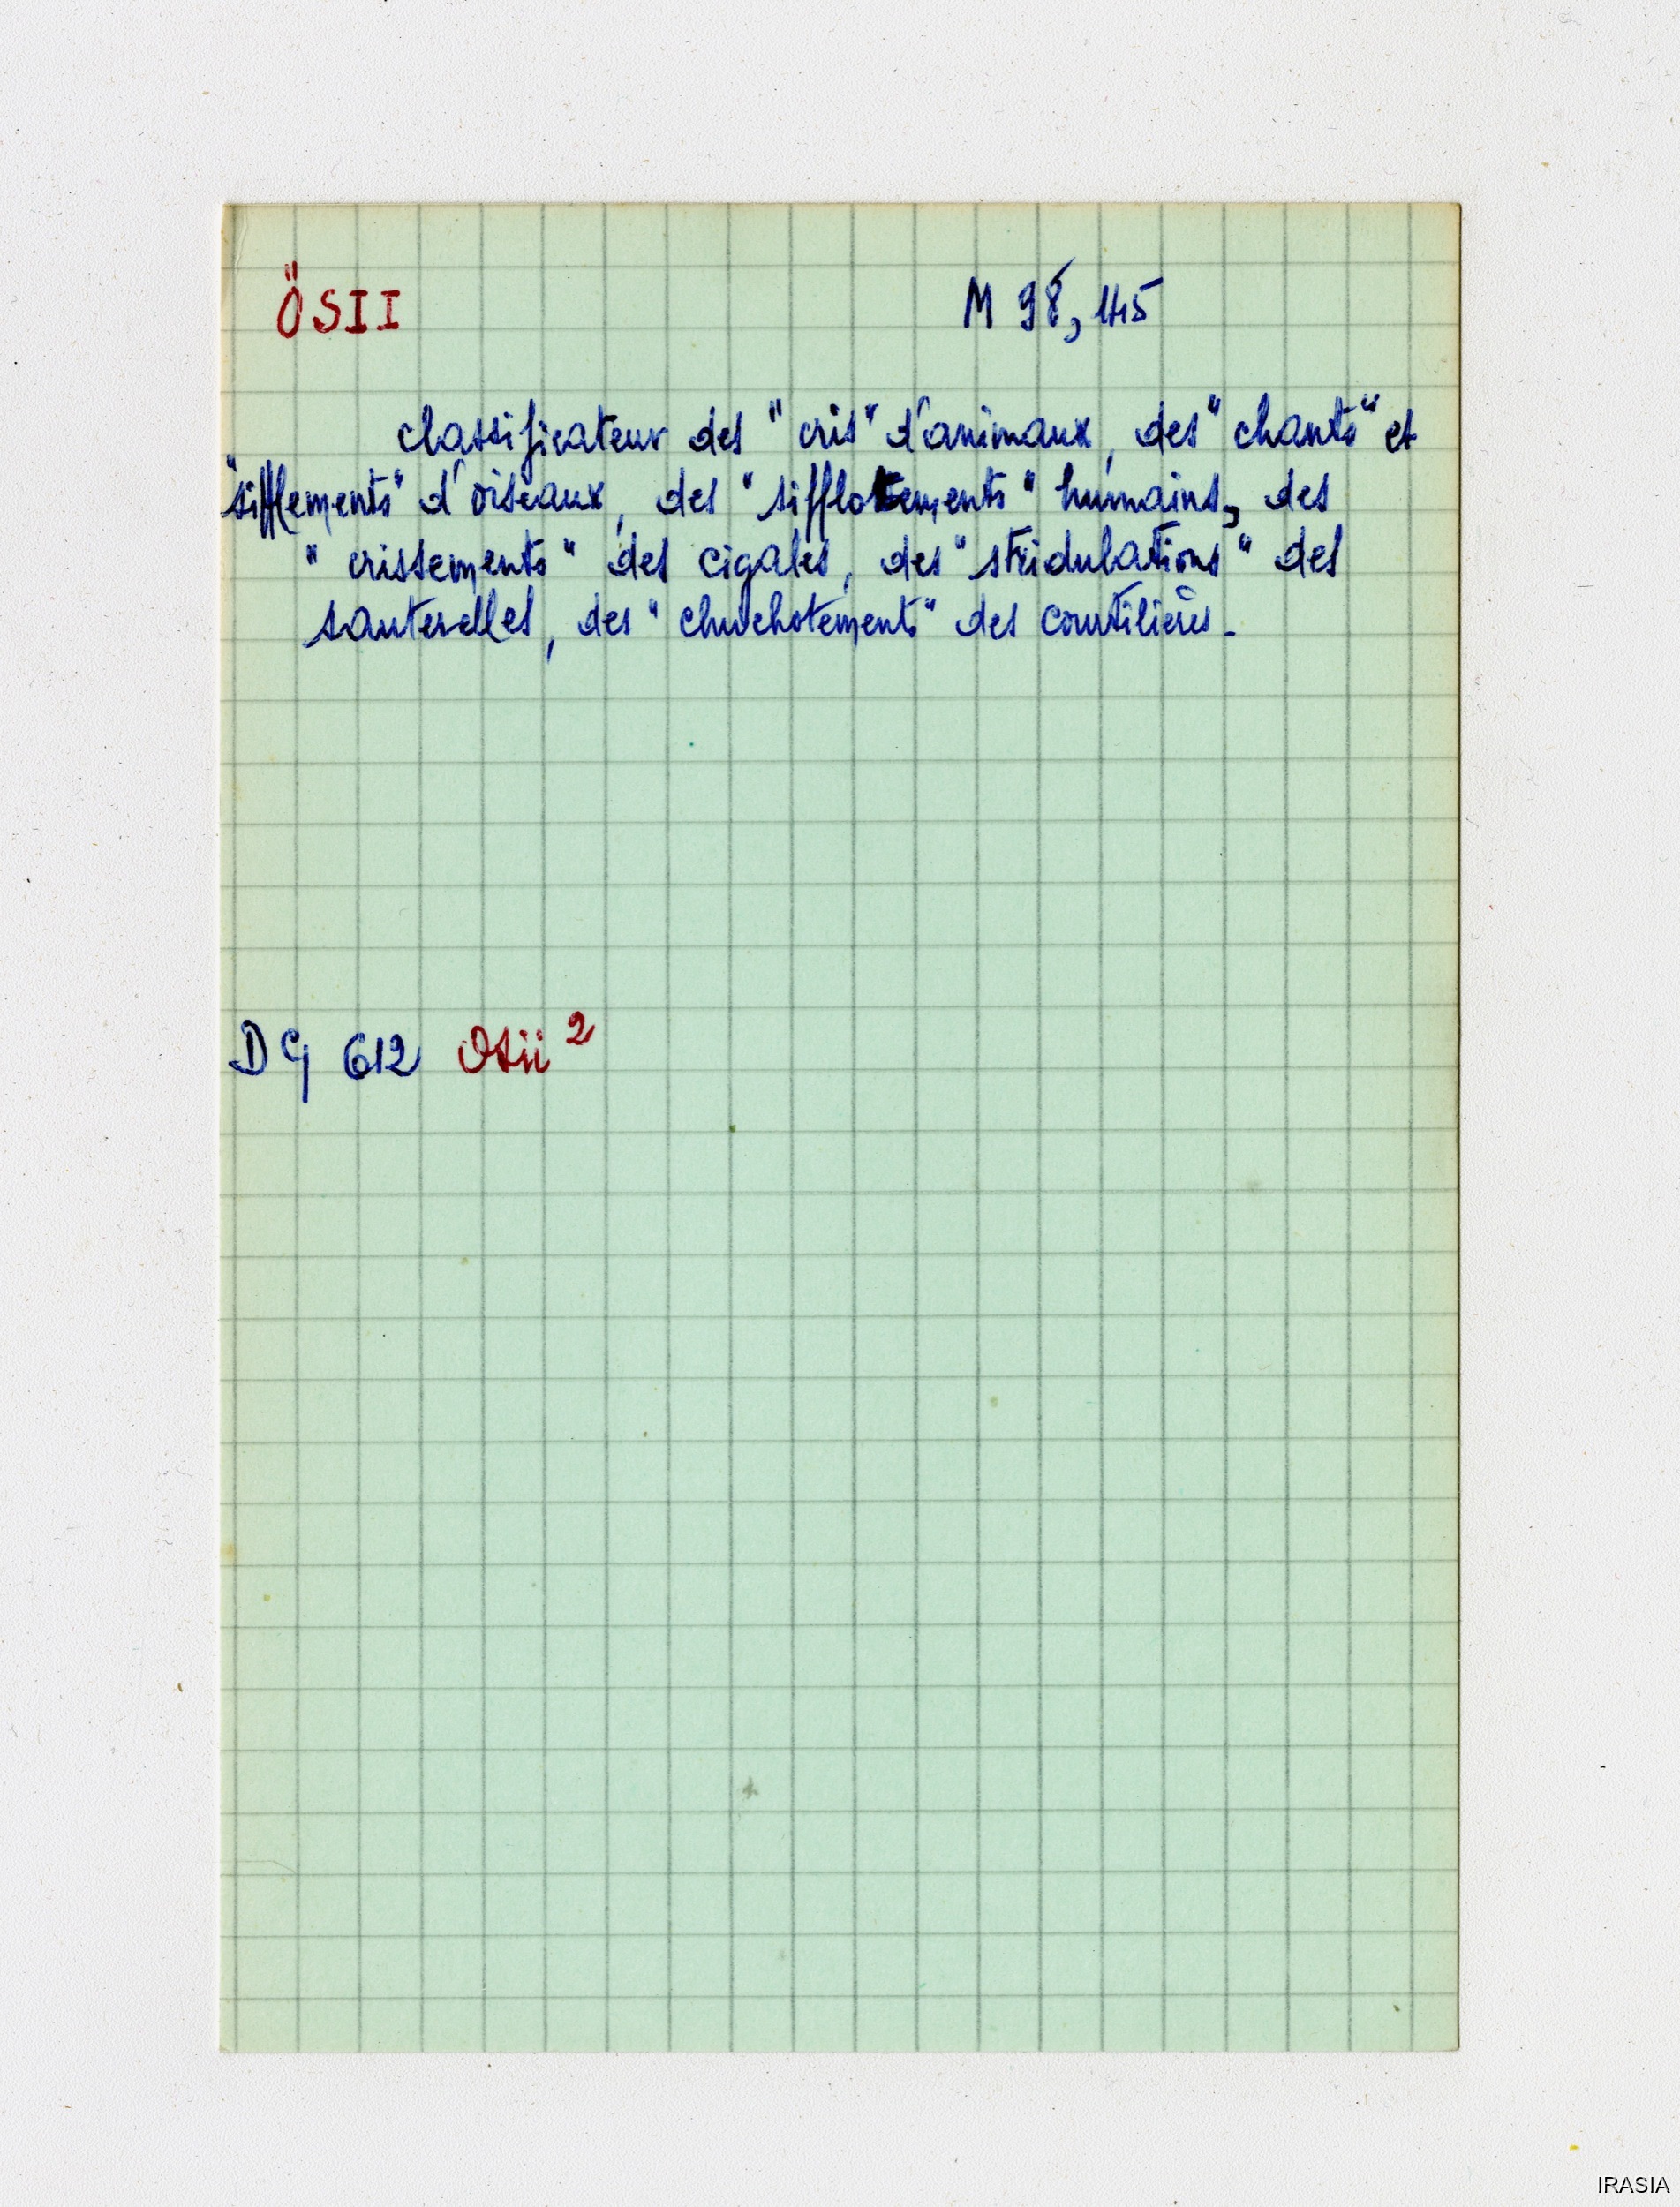 ÖSII M 98, 145
classificateur des "cris" d'animaux, des "chants" et
"sifflements" d'oiseaux, des "sifflotements" humains, des
"crissements" des cigales, des "stridulations" des
sauterelles, des "chuchotements" des courtilières.
DG 612 Osii 2
IRASIA